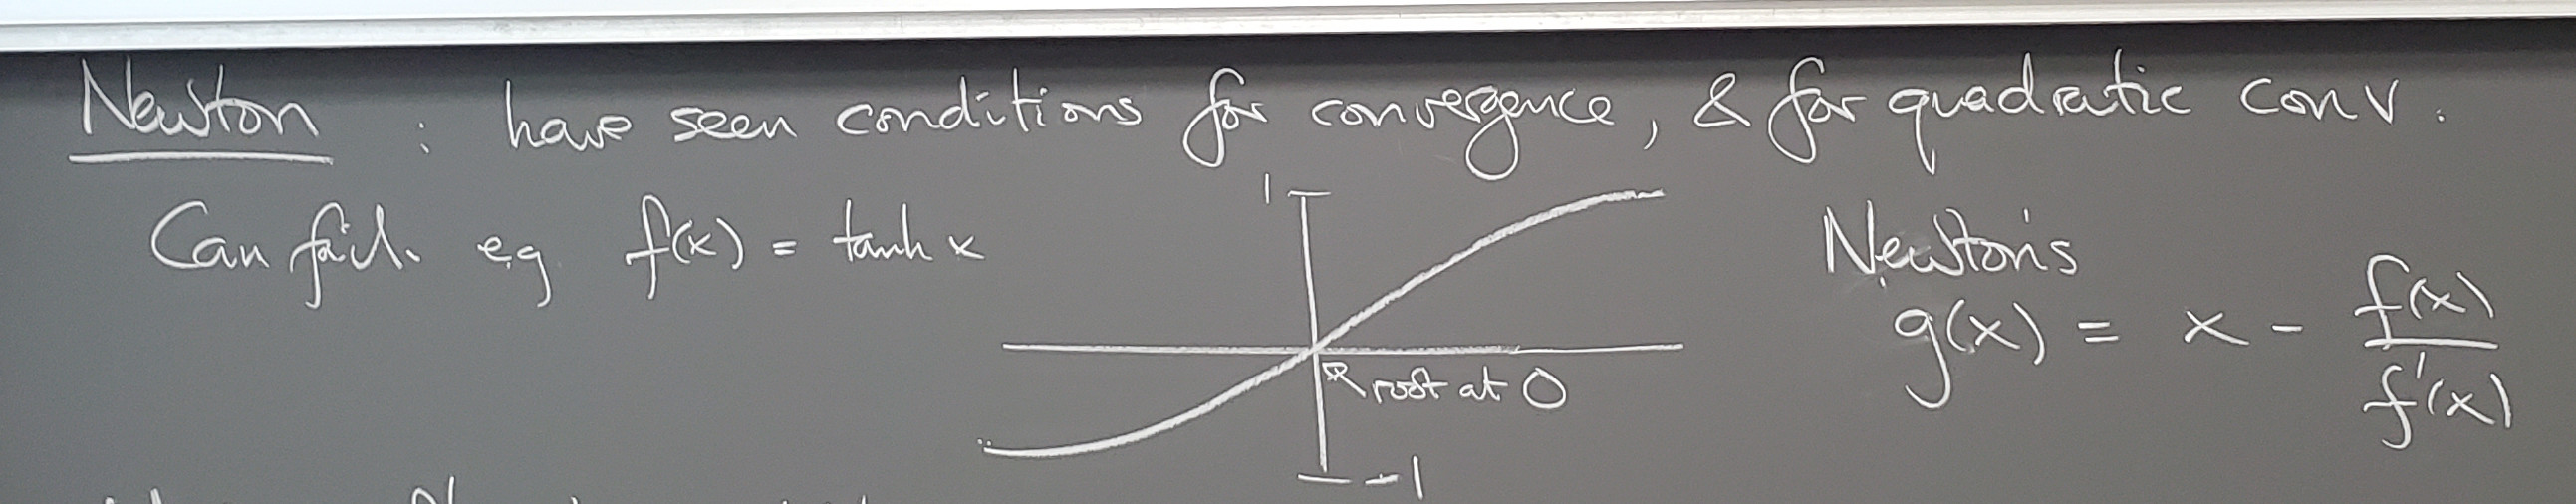 Newton : have seen conditions for convergence, & for quadratic conv.
Can fail. eg f(x) = tanh x
1
root at 0
-1
Newton's
g(x) = x - f(x)/f'(x)